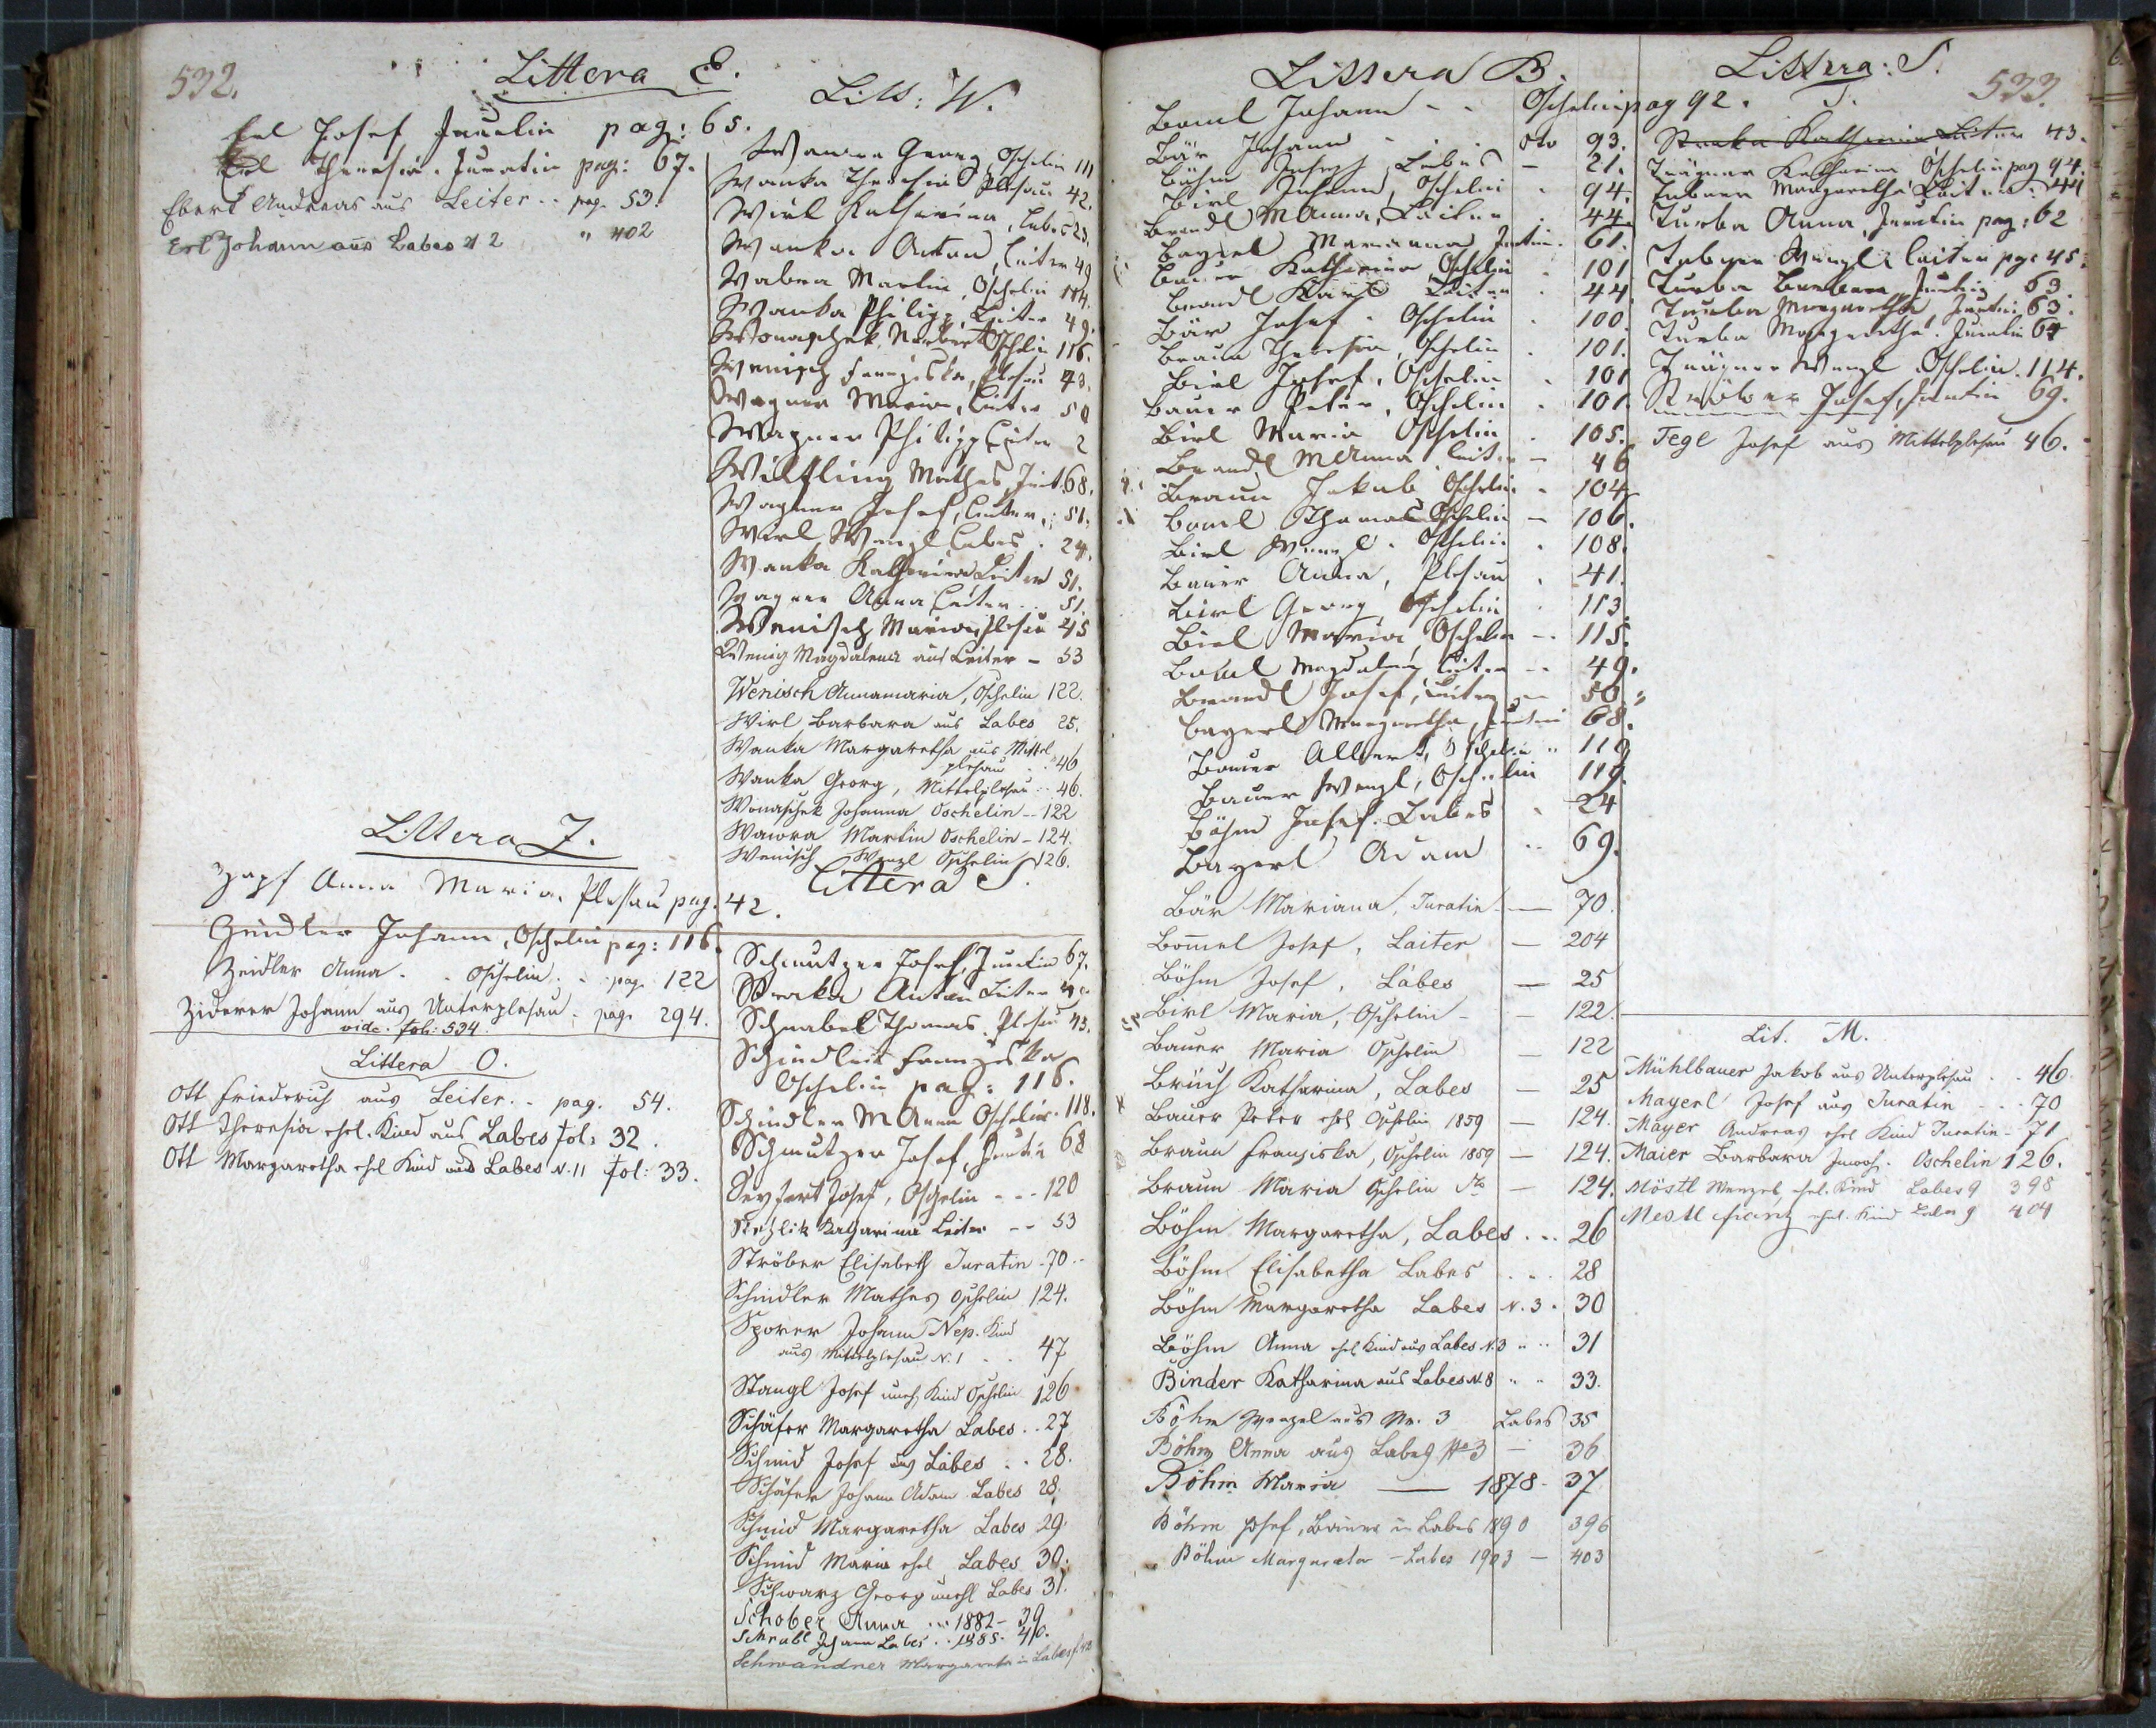 532.
Littera E.
Erl Josef Juratin pag: 65.
Erl Theresia Juratin pag: 67.
Ebert Andreas aus Leiter .. pag. 53.
Erl Johann aus Labes 12 " 402
Littera Z.
Zapf Anna Maria Plesau pag. 42.
Zeidler Johann, Oschelin pag: 116.
Zeidler Anna . . Oschelin . . pag. 122
Ziderer Johann aus Unterplesau . pag. 294.
vide. fol: 534.
Littera O.
Ott Friederich aus Leiter .. pag. 54.
Ott Theresia ehel. Kind aus Labes fol: 32.
Ott Margaretha ehel Kind aus Labes N. 11 fol: 33.
Litt: W.
Georg, Oschelin 111
Wanka Theresia Plesau 42.
Wirl Katharina, Labes 23.
Wanka Anton, Leiter 49
Martin, Oschelin 114.
Wanka Philipp, Leiter 49.
Wonaschek Norbert Oschelin 116.
Wenisch Franziska, Plesau 43.
Wagner Maria, Leiter 50
Wagner Philipp Leiter 2
Wilfling Mathes, Jurat. 68.
Wagner Josef, Leiter .. 51.
Wirl Wenzl Labes . 24.
Wanka Katharina Leiter 51.
Wagner Anna Leiter .. 51.
Wenisch Maria, Plesau 45
Wenig Magdalena aus Leiter - 53
Wenisch Annamaria, Oschelin 122.
Wirl Barbara aus Labes 25.
Wanka Margaretha aus Mittel
plesau . . 46
Wanka Georg, Mittelplesau .. 46.
Wonaschek Johanna Oschelin -- 122
Wawra Martin Oschelin - 124.
Wenisch Wenzl Oschelin 126.
Littera S.
Schmutzer Josef, Juratin 67.
Straka Anton Leiter
Schnabel Thomas. Plesau 43.
Schindler Franziska
Oschelin pag: 116.
Schindler M Anna Oschelin. 118.
Schmutzer Josef, Juratin 68
Seyfert Josef, Oschelin - - - 120
Katharina Leiter -- 53
Ströber Elisabeth Juratin . 70 ..
Schindler Mathes Oschelin 124.
Sporer Johann Nep. Kind
aus Mittelplesau N. 1 . . 47
Stangl Josef uneh. Kind Oschelin 126
Schäfer Margaretha Labes .. 27
Schmid Josef aus Labes . . 28.
Schäfer Johann Adam Labes 28.
Schmid Margaretha Labes 29.
Schmid Maria ehel Labes 30.
Schwarz Georg unehl Labes 31.
Schober Anna ... 1882 - 39
Schrabl Johann Labes .. 1885. 40.
Schwandner Margareta in Labes
Littera B.
Johann - . Oschelin pag 92.
Bär Johann - . dto 93.
Böhm Josef, Labes - 21.
Birl Johann, Oschelin . 94.
Brandl M Anna, Leiter . 44.
Bayerl Marianna Juratin . 61.
Bauer Katharina Oschelin . 101
Brandl Karl Leiter . 44
Bär Josef . Oschelin . 100.
Braun Theresia, Oschelin . 101.
Birl Josef, Oschelin . 101
Bauer Peter, Oschelin . 101.
Birl Maria Oschelin . 105.
Brandl M Anna Leiter - 46
Braun Jakob Oschelin . 104
Thomas Oschelin - 106.
Birl Wenzl . Oschelin . 108.
Bauer Anna, Plesau . 41.
Birl Georg Oschelin . 113
Birl Maria Oschelin -- 115.
Magdalena Leiter -- 49.
Brandl Josef, Leiter -- 50.
Bayerl Margaretha, Juratin 68.
Bauer Albert, Oschelin .. 119
Bauer Wenzl, Oschelin 119.
Böhm Josef. Labes . 24
Bayerl Adam .. 69.
Bär Mariana, Juratin - — 70.
Bom̄el Josef, Laiter — 204
Böhm Josef, Labes — 25
Birl Maria, Oschelin - — 122.
Bauer Maria Oschelin — 122
Brüch Katharina, Labes — 25
Bauer Peter ehel Oschelin 1859 — 124.
Braun Franziska, Oschelin 1859 — 124.
Braun Maria Oschelin dto — 124.
Böhm Margaretha, Labes . .. 26
Böhm Elisabetha Labes . . . 28
Böhm Margaretha Labes N. 3 . 30
Böhm Anna ehel Kind aus Labes N. 3 .. .. 31
Binder Katharina aus Labes N. 8 .. .. 33.
Böhm Wenzel aus Nr. 3 Labes 35
Böhm Anna aus Labes No 3 — 36
Böhm Maria — 1878 - 37
Böhm Josef, Bauer in Labes 1890 396
Böhm Margareta - Labes 1903 — 403
Littera: S.
T.
533.
Straka Katharina Leiter 43.
Katharina Oschelin pag 94.
Margaretha Leiter . 44
Turba Anna, Juratin pag: 62
Wenzl Leiter pg: 45.
Turba Barbara Juratin 63.
Turba Margaretha, Juratin 63.
Turba Margaretha. Juratin 64
Wenzl Oschelin. 114.
Ströber Josef, Juratin 69.
Tegl Josef aus Mittelplesau 46.
Lit. M.
Mühlbauer Jakob aus Unterplesau . . 46.
Mayerl Josef aus Juratin . . . 70
Mayer Andreas ehel Kind Juratin - 71
Maier Barbara Oschelin 126.
Möstl Wenzel, ehel. Kind Labes 9 398
Mestl Franz ehel. Kind Labes 9 404